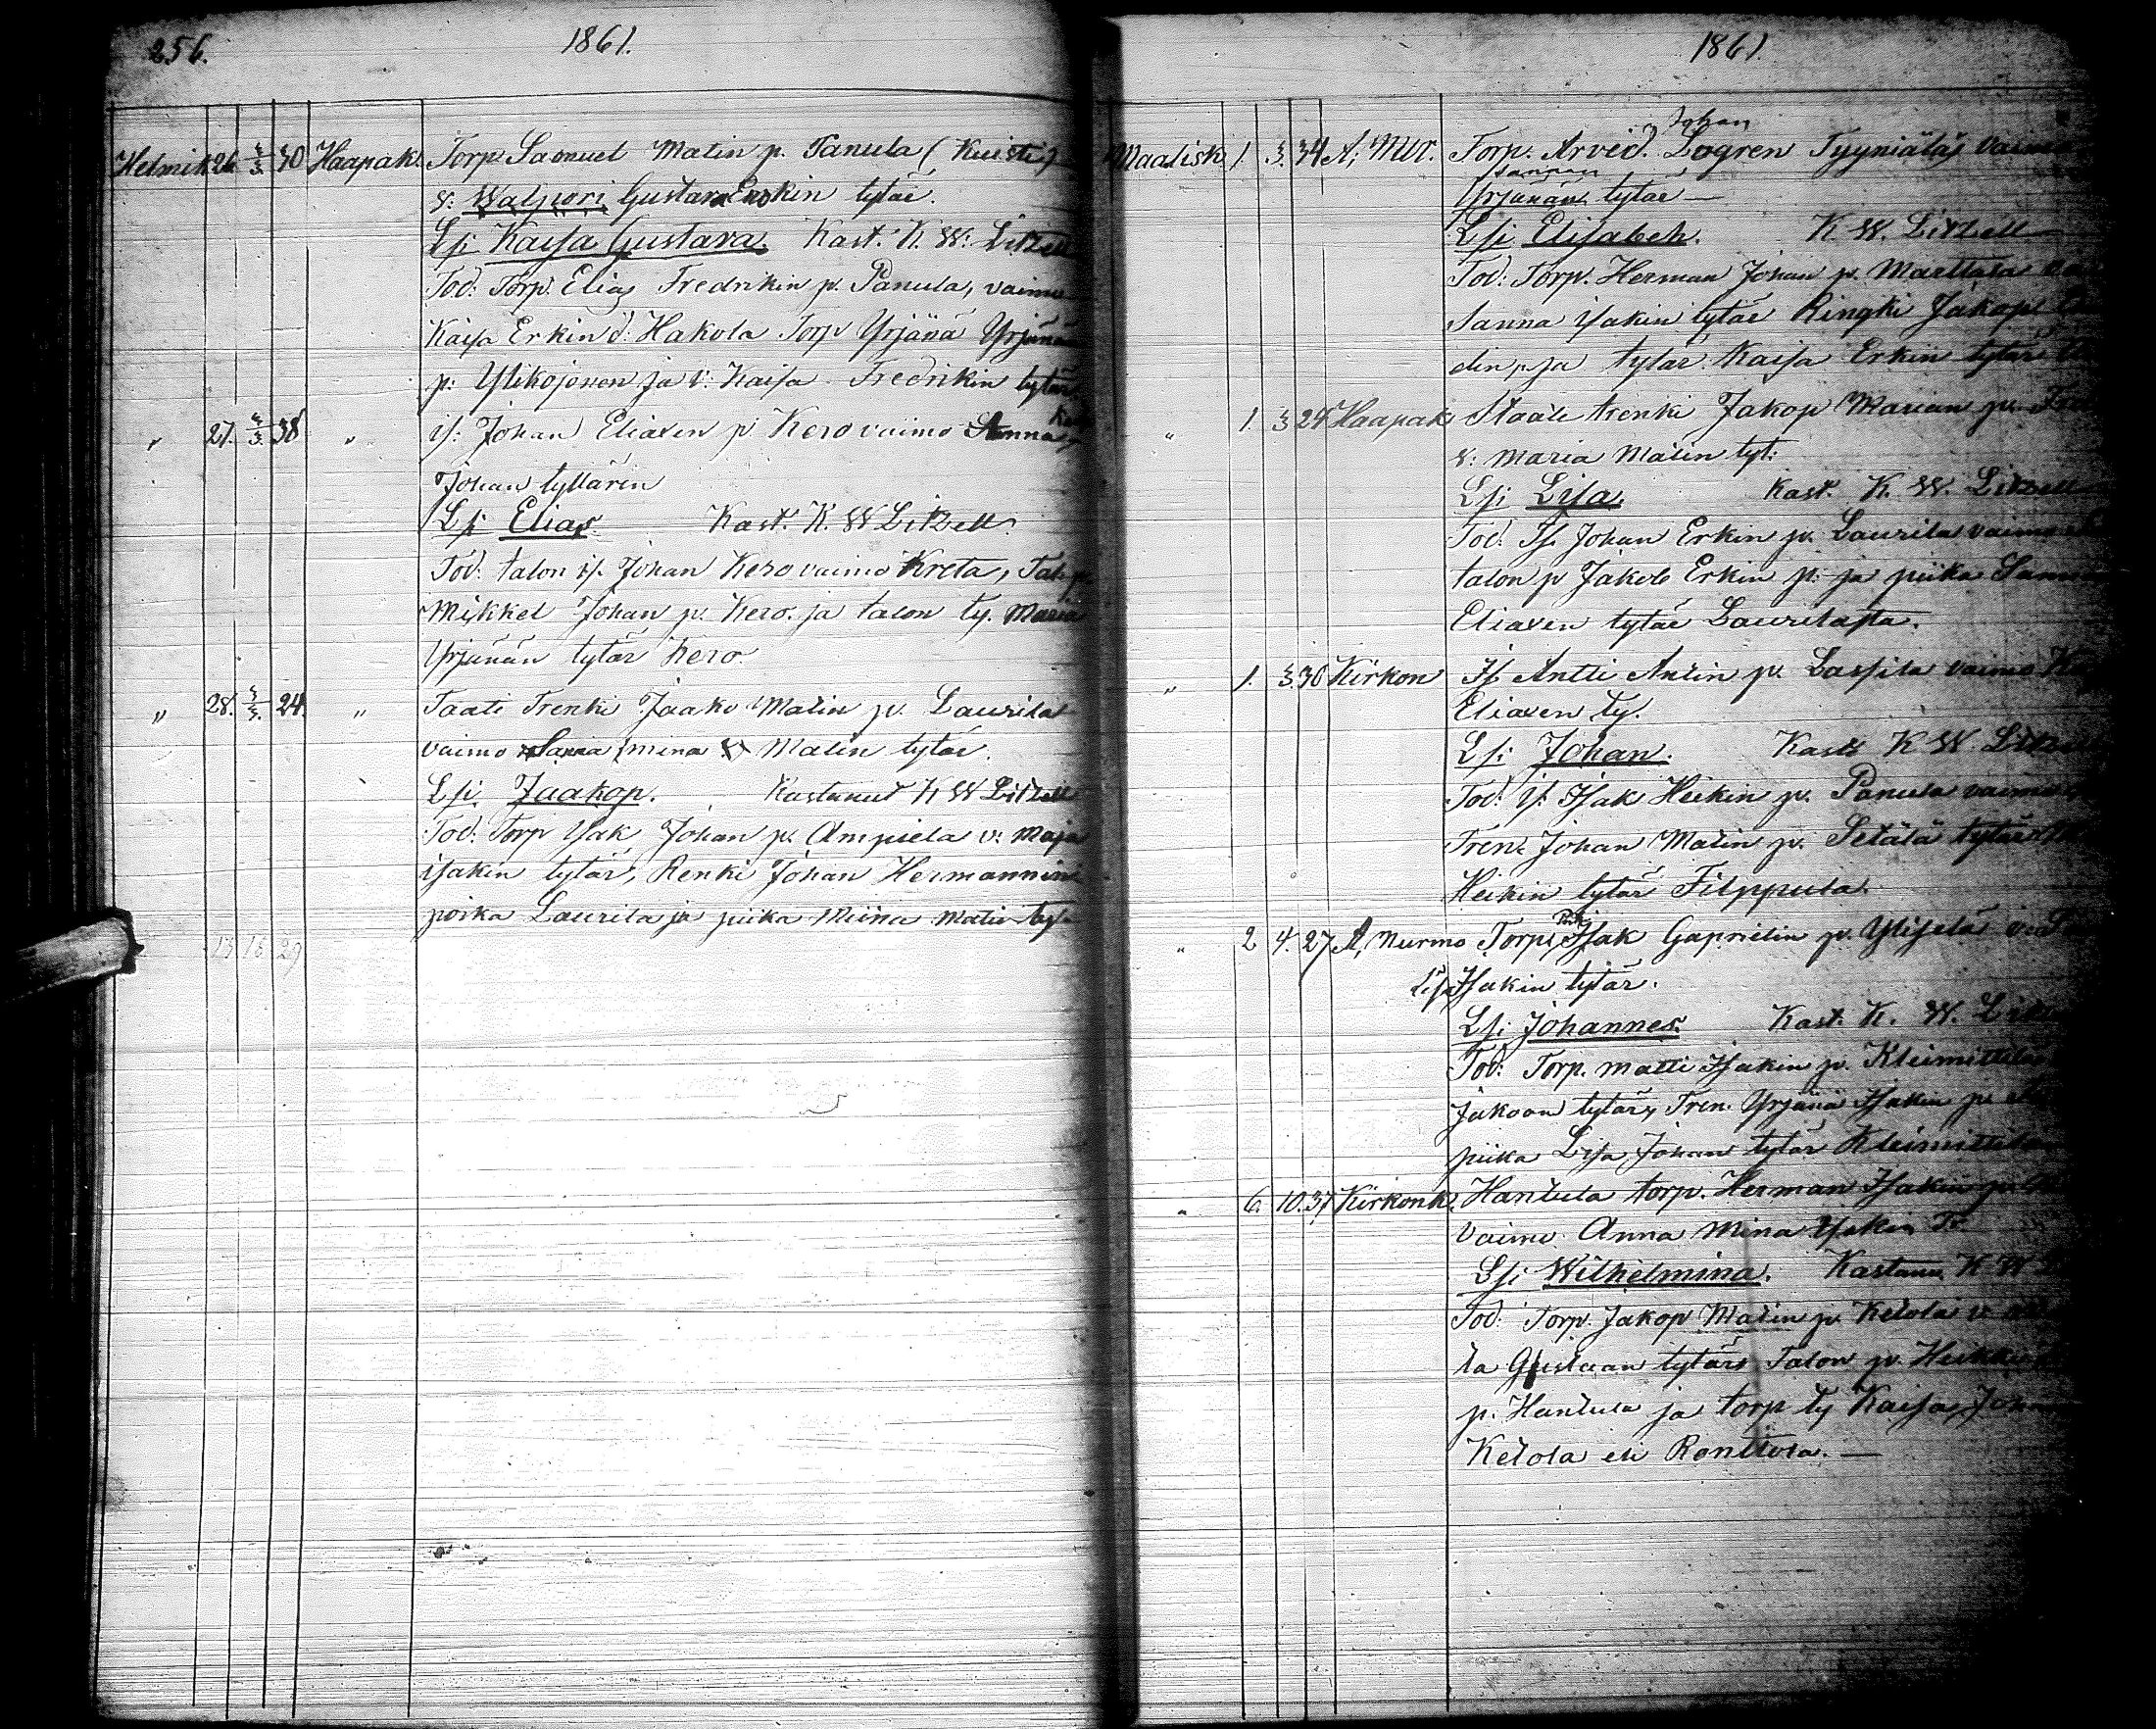 256.
1861.
Helmik. 26. 3/3. 40 Haapak. Torp. Samuel Matin p. Panula (Kuisti)
v: Walpori Gustava Erkin tytär.
Lsi Kaisa Gustava. Kast. K. W. Litzell
Tod. Torp. Elias Fredrikin p. Panula, vaimo
Kaisa Erkin d. Hakola Torp Yrjänä Yrjänän
p: Ylikojonen ja v: Kaisa Fredrikin tytär
" 27. 3/3. 38 " is: Johan Eliaxen p Kero vaimo Sanna
Johan tyttärin
Lsi Elias. Kast. K. W Litzell.
Tod: talon is. Johan Kero vaimo Kreta, Tal. p.
Mikkel Johan p. Kero. ja talon ty. Maria
Yrjänän tytär Kero.
" 28. 3/3. 24. " Taati Trenki Jaako Matin p. Laurila
vaimo mina Matin tytär.
Lsi Jaakop. Kastanut K W Litzell
Tod: Torp Isak Johan p. Ampiela v: Maja
isakin tytär, Renki Johan Hermannin
poika Laurila ja piika Miina Matin ty.
13 16 29
1861.
Maalisk. 1. 3. 34 A, Mur. Torp. Arvid. Johan Logren Tyyniälä, vaimo
Sannan
Yrjänän tytär —
Lsi Elisabeh. K. W. Litzell
Tod: Torp. Herman Johan p. Marttala
Sanna isakin tytär Ringki Jakop
din p ja tytär Kaisa Erkin tytär
" 1. 3 24 Haapak Staati trenki Jakop Marian p.
v: Maria Matin tyt:
Lsi Lisa. Kast. K. W. Litzell
Tod: Is. Johan Erkin p. Laurila vaimo
talon p Jakob Erkin p. ja piika Sanna
Eliaxen tytär Laurilasta.
" 1. 3. 30 Kirkon Is Antti Antin p. Lassila vaimo
Eliaxen ty.
Lsi: Johan. Kast K W. Litzell
Tod: is. Isak Heikin p. Panula vaimo
Tren. Johan Matin p. Setälä tytär
Heikin tytär Filppula.
" 2 4. 27 A, Nurmo Torp. Isak Gaprielin p. Ylisetä
Lisa Isakin tytär.
Lsi: Johannes. Kast. K. W.
Tod: Torp. Matti Isakin p. Kleimittilä
Jakoon tytär, Tren. Yrjänä Isakin p.
piika Lisa Johan tytär Kleimittilä
" 6. 10. 37 Kirkonk. Hantula torp. Herman Isakin p.
vaimo Anna Mina Isakin
Lsi Wilhelmina. Kastanu K W
Tod: Torp. Jakop Matin p. Ketola v
ta Gustaan tytär, Talon p. Heikki
p. Hantula ja torp ty Kaisa,
Ketola eli Ronttola. —